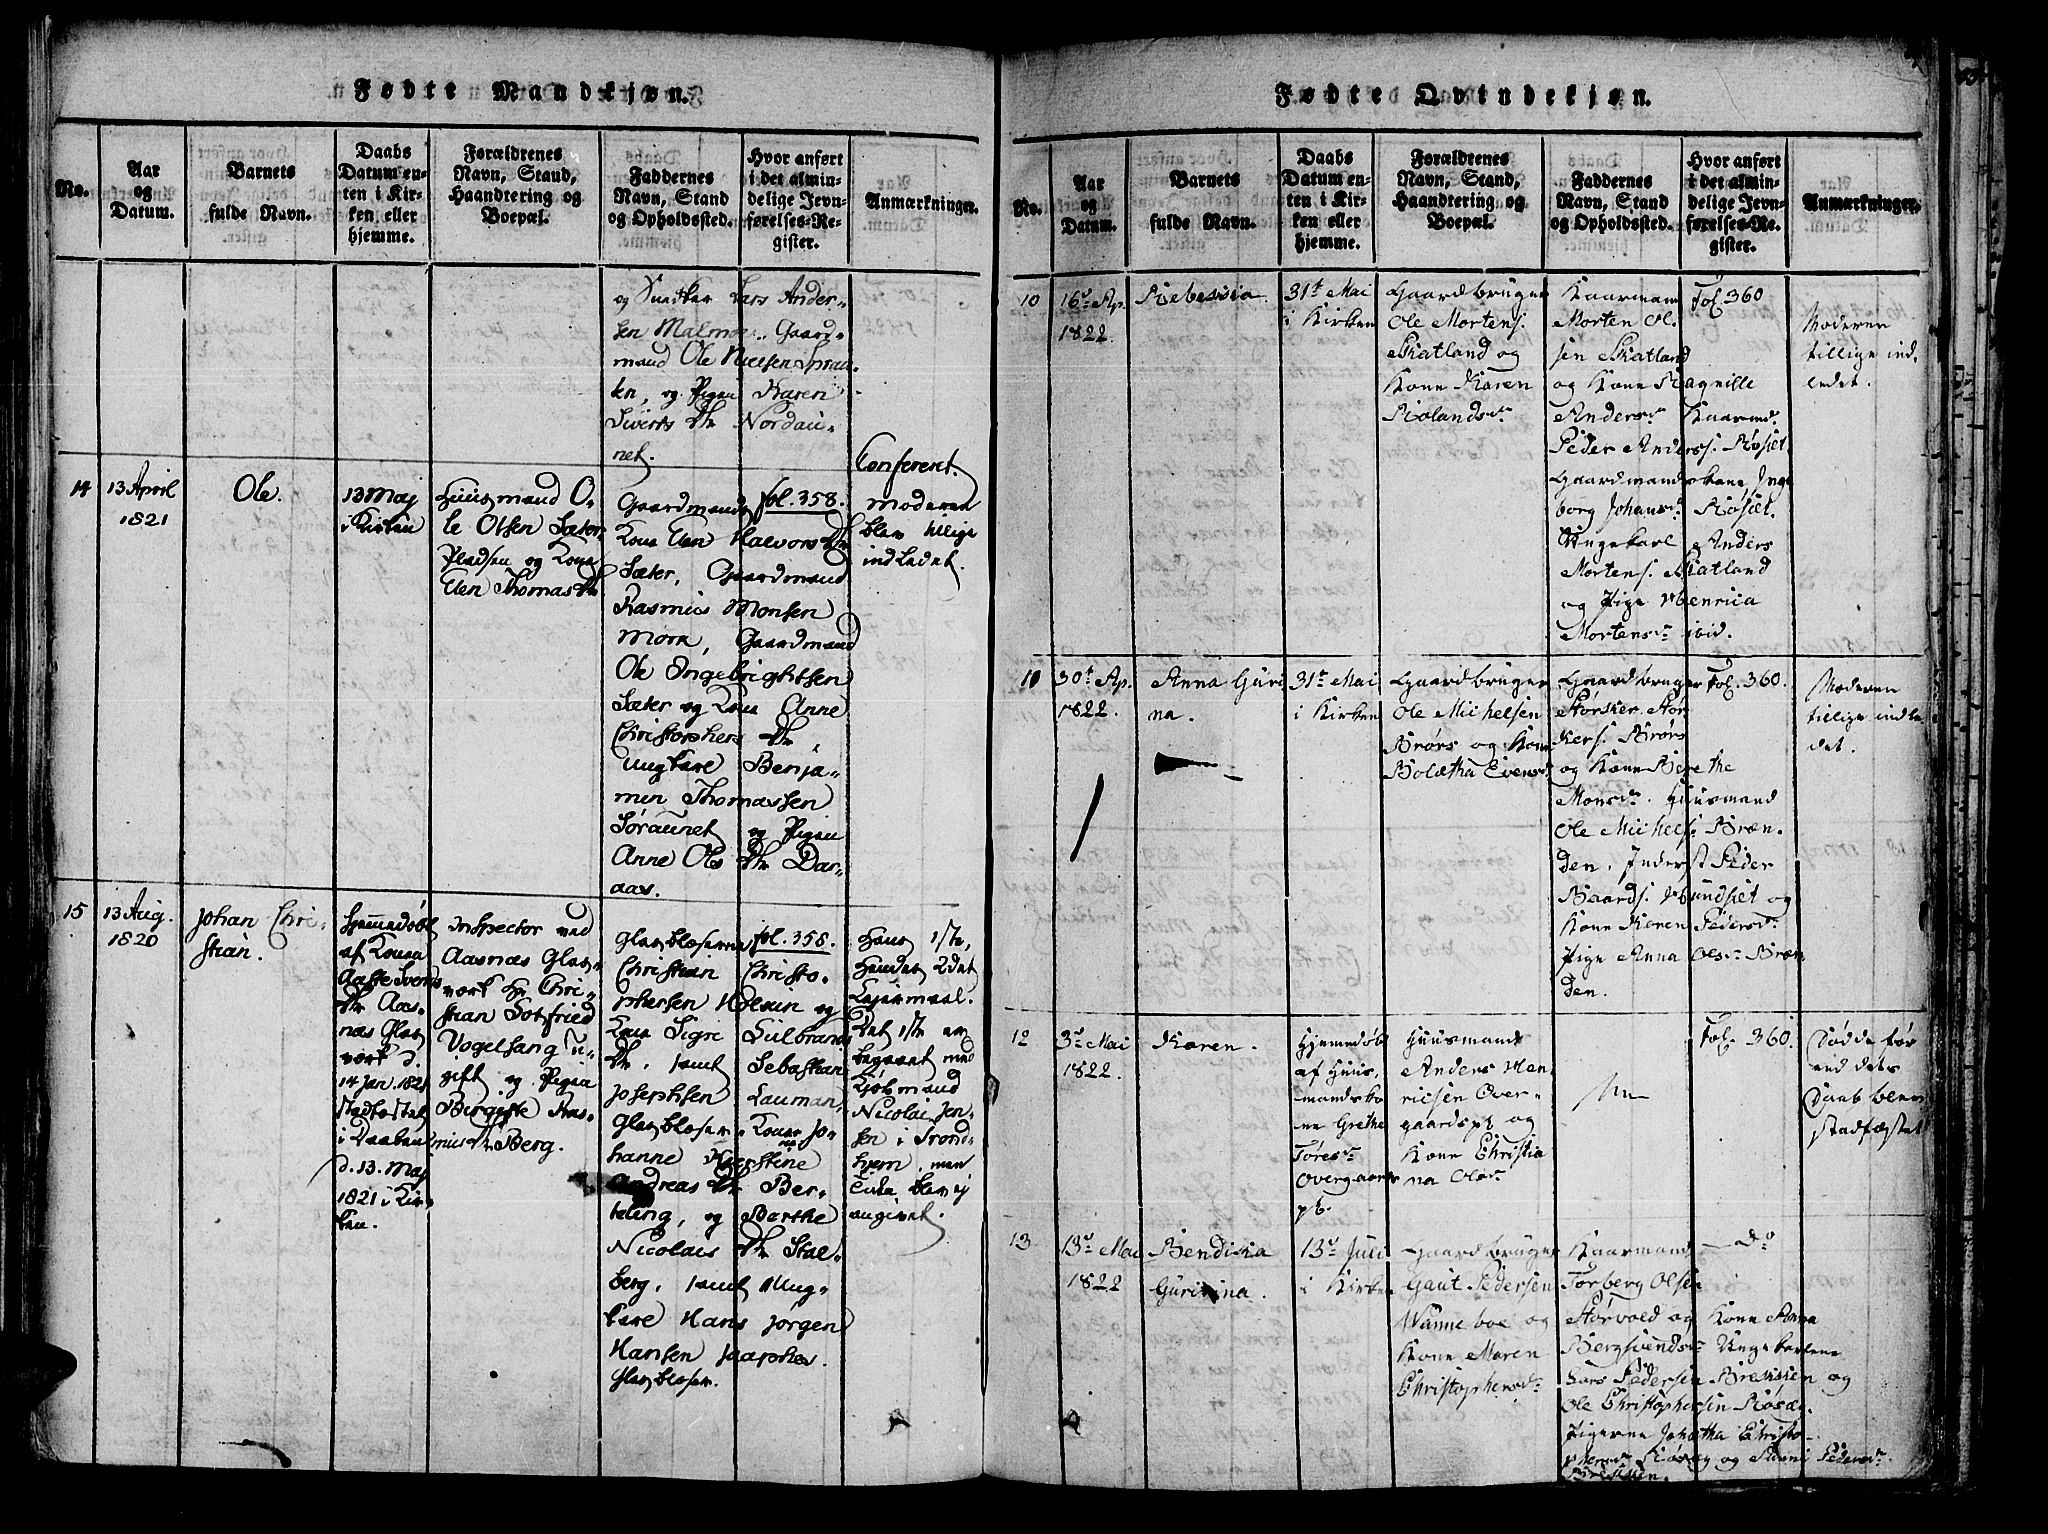 Fødte Mandkjøn.
No.
Aar
og
Datum.
Barnets
fulde Navn.
Daabs
Datum en-
ten i Kir-
ken eller
hjemme.
Forældrenes
Navn, Stand,
Haandtering og
Boepæl.
Faddernes
Navn, Stand
og Opholdssted.
Hvor anført
i det almin-
delige Jevn-
førelses-Re-
gister.
Anmærkninger.
og Snedker Lars Ander-
sen Malmoe, Gaard-
mand Ole Nielsen
ken, og Pigen Karen
Siverts Dtr Nordau-
net.
14
13 April
1821
Ole.
13 Maj
i Kirken
Huusmand O-
le Olsen Sæter
Pladsen og Kone
Elen Thomas Dtr
Gaardmands
Kone Elen Halvors Dtr
Sæter, Gaardmand
Rasmus Monsen
Mork, Gaardmand
Ole Ingebrightsen
Sæter og Kone Anne
Christophers Dtr,
Ungkarl Benja-
men Thomassen
Søraunet og Pigen
Anne Ols Dtr Dar-
aas.
fol. 358.
Confereret.
moderen
blev tillige
indledet.
15
13 Aug.
1820
Johan Chri-
stian.
Hjemmedøbt
af Konen
Aaste Svends
Dtr Aas-
næs Glas
værk d.
14 Jan. 1821
stadfæstet
i Daaben
d. 13. Maj
1821 i Kir-
ken.
Inspector ved
Aasnæs Glas-
værk Hr Chri-
stian Gotfried
Vogelsang u-
gift og Pigen
Birgitte Ras-
mus Dtr Berg.
Glasblæserne
Christian Christo-
phersen Olsin og
Kone Sigri Gulbrands
Dtr, samt Sebastian
Josephsen Lauman,
Glasblæser, Kone Jo-
hanne Kjerstine
Andreas Dtr Ber-
teling, og Berthe
Nicolais Dtr Stal-
berg, samt Ung-
karl Hans Jørgen
Hansen
Glasblæser.
fol. 358.
Hans 1ste,
Hendes 2det
Leiermaal.
Det 1ste er
begaaet med
Kjøbmand
Nicolai Jen-
sen i Trond-
hjem, men
Tiden blev ej
angivet.
Fødte Qvindekjøn.
No.
Aar
og
Datum.
Barnets
fulde Navn.
Daabs
Datum en-
ten i Kir-
ken eller
hjemme.
Forældrenes
Navn, Stand,
Haandtering og
Boepæl.
Faddernes
Navn, Stand
og Opholdssted.
Hvor anført
i det almin-
delige Jevn-
førelses-Re-
gister.
Anmærkninger.
10
16de Ap.
1822.
Rebekka.
31te Mai
i Kirken
Gaardbruger
Ole Mortens.
Skatland og
Kone Karen
Rolandsdr
Kaarmand
Morten Ol-
sen Skatland
og Kone Ragnille
Andersdr Kaarmd.
Peder Anderss. Røset.
Gaardmandskone Inge
borg Johansdr Røset.
Ungekarl Anders
Mortens. Skatland
og Pige Henrica
Mortensdr ibid.
Fol 360
Moderen
tillige ind-
ledet.
11
30te Ap.
1822.
Anna Guri
na.
31te Mai
i Kirken
Gaardbruger
Ole Michelsen
Brørs og Kone
Bolætha Evensdr
Gaardbruger
Størsker Stør
kers. Brørs
og Kone Berethe
Monsdr. Huusmand
Ole Michels. Bræn-
den, Inderst Peder
Baards. Hundset og
Kone Karen Pedersdr
Pige Anna Olsdr Bræn
den.
Fol. 360.
Moderen
tillige indle
det.
12
3de Mai
1822.
Karen.
Hjemedøbt
af Huus-
mandsko
ne Grethe
Tøresdr
Overgaards
pl.
Huusmand
Anders Hen
ricsen Over-
gaardspl og
Kone Christia
na Olsdr
Fol. 360.
Døde før
end dets
Daab blev
stadfæstet
13
13de Mai
1822
Bendikta
Guriana.
13de Juli
i Kirken
Gaardbruger
Gaut Pedersen
Wanneboe og
Kone Maren
Christophersdr
Kaarmand
Torberg Olsen
Størvold og Kone Anna
Bergsvendsdr Ungekarlene
Lars Pedersen Brekken og
Ole Christophersen Røsæ.
Pigerne Johætha Christo-
phersdr Røsæg og Sinni Pedersdr
Brekken.
do